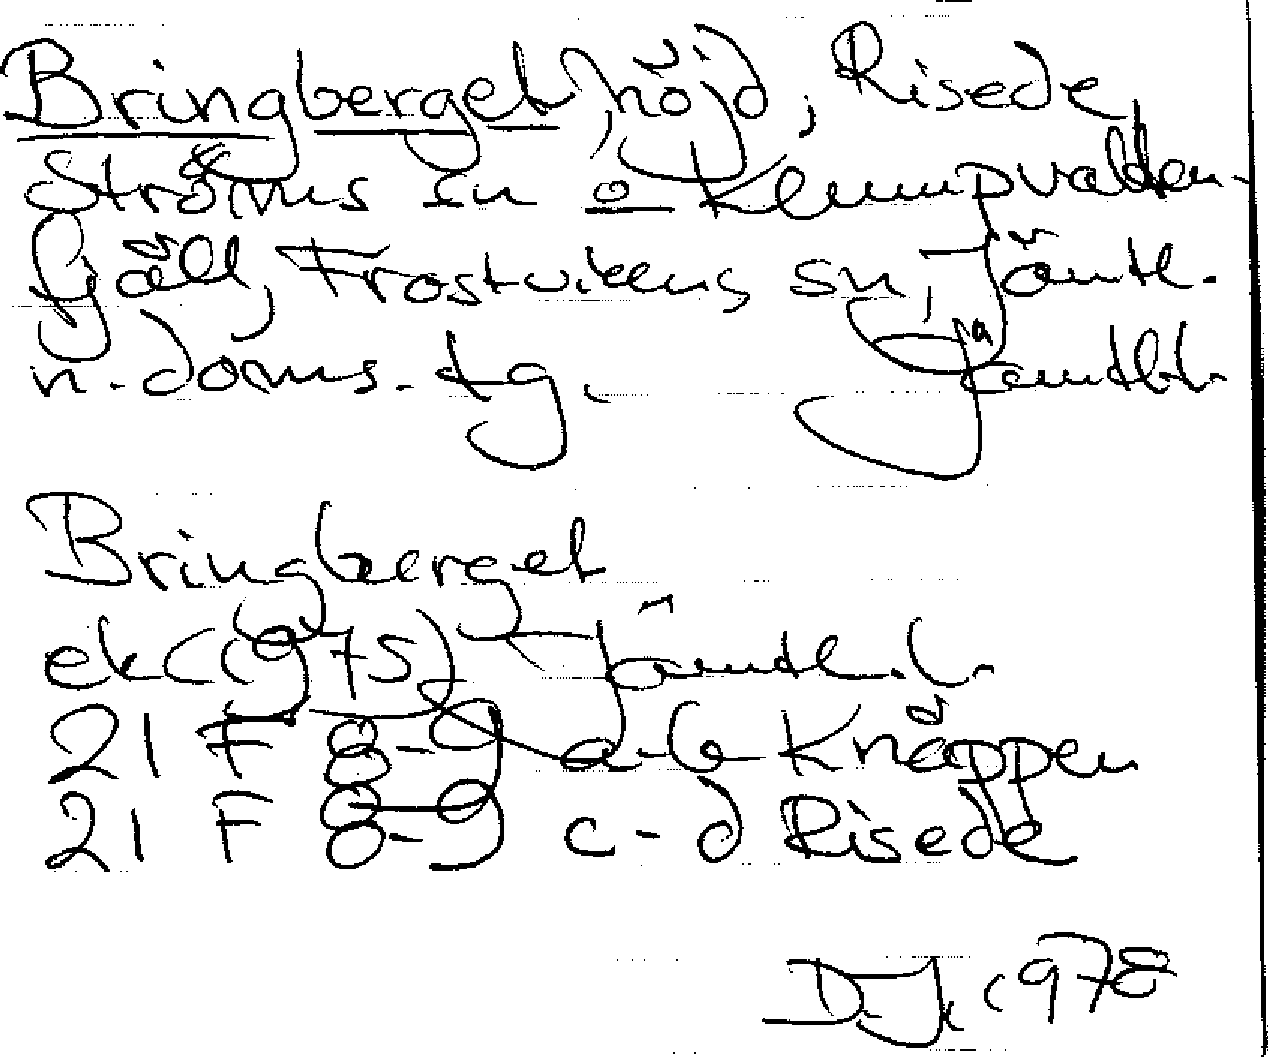 Bringberget, höjd, Risede,
Ströms sn o Klumpvatten-
fjäll, Frostvikens sn, Jämtl.
n. doms. tg. Jämtl.l.
Bringberget
ek (1975) Jämtl. l.
21 F 8-9 a-b Knäppen
21 F 8-9 c-d Risede
1978